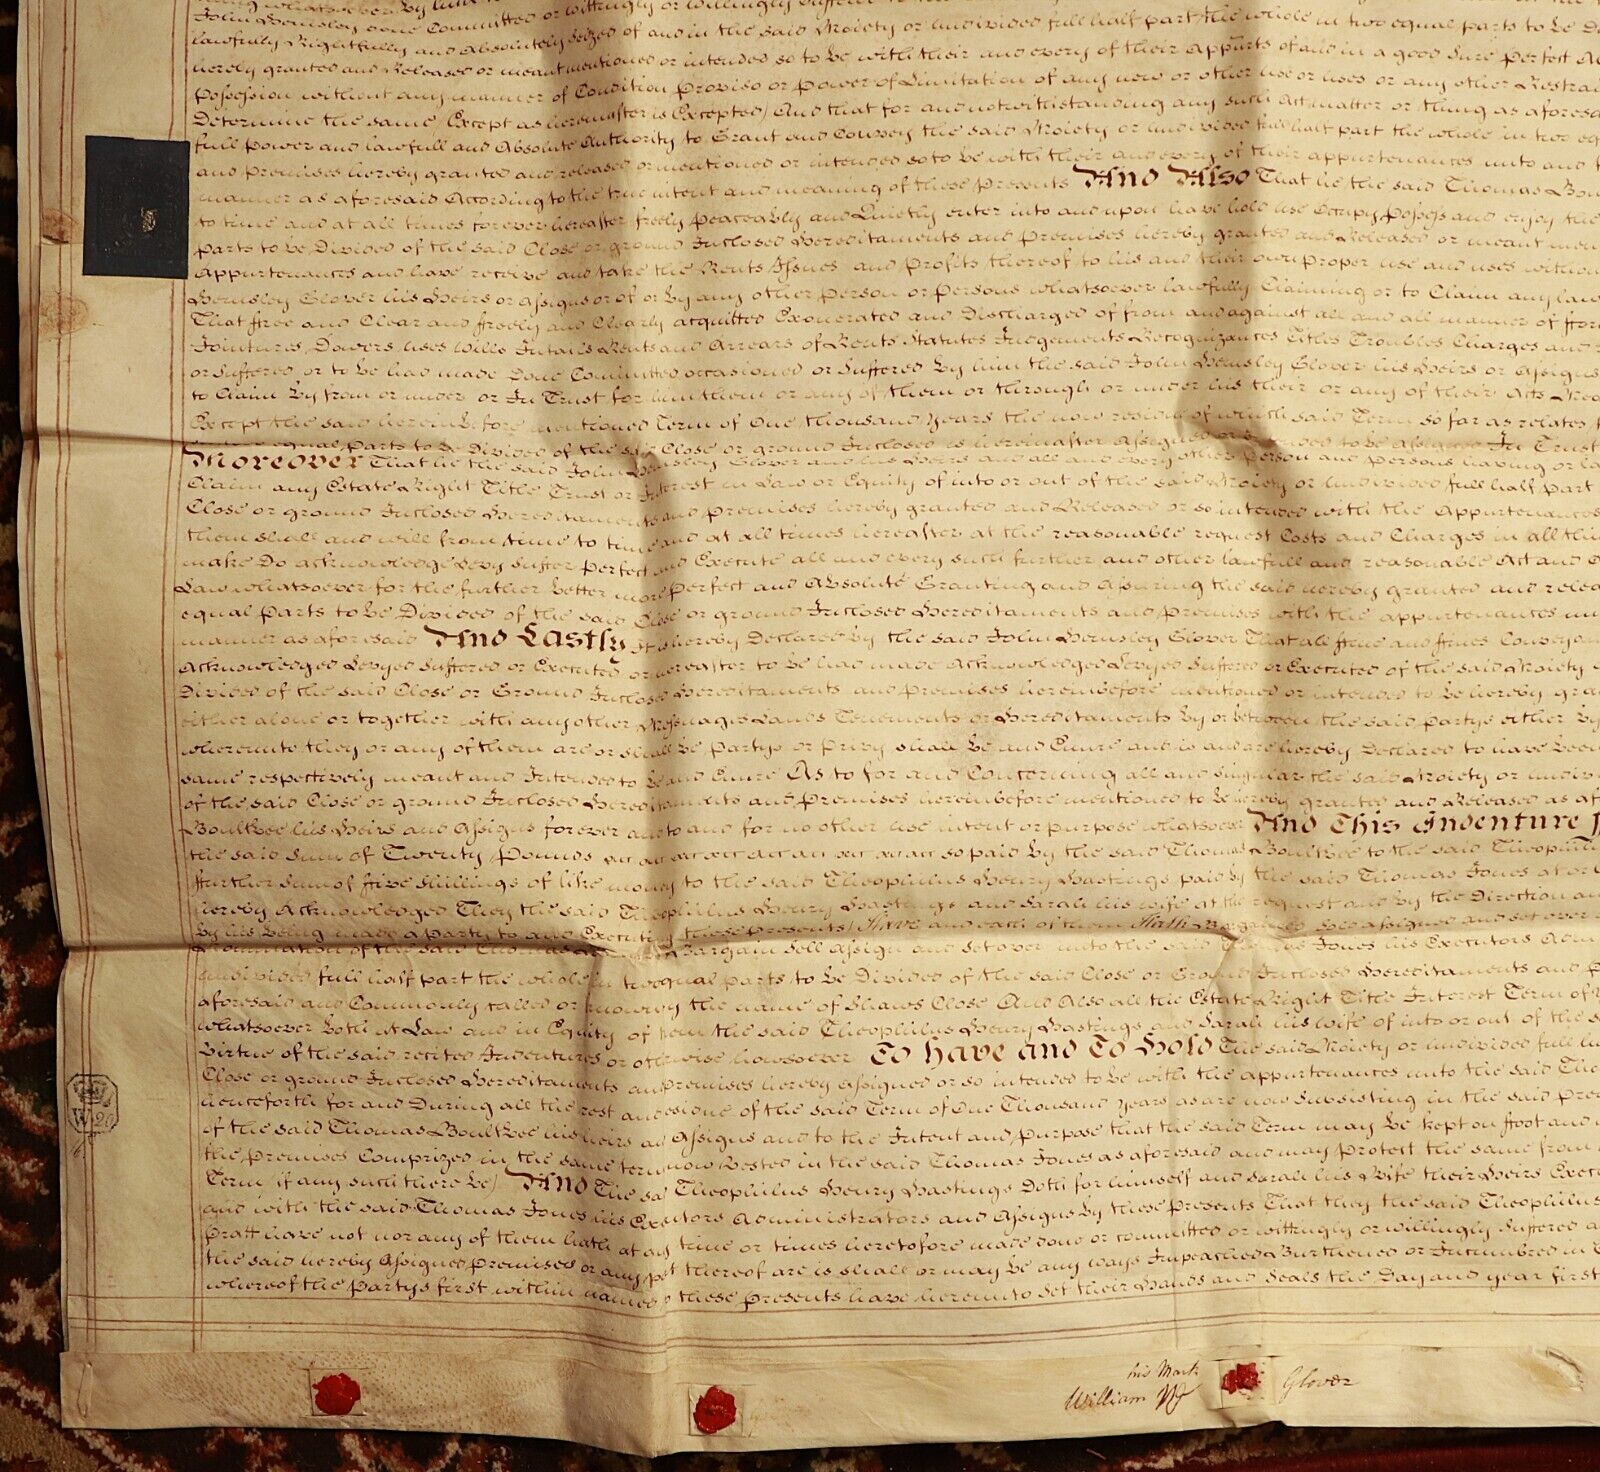 John Hemsley done Committed or wittingly or willingly suffered
lawfully Rightfully and Absolutely seized of and in the said Moiety or undivided full half part the whole in two equal parts to be
hereby granted and Released or meant mentioned or intended so to be with their and every of their Appurts of and in a good Sure perfect
Possession without any manner of Condition Proviso or Power of Limitation of any new or other use or uses or any other Restrai
Determine the same Except as hereinafter is Excepted) And that for and notwithstanding any such Act matter or thing as aforesa
full Power and lawfull and Absolute Authority to Grant and Convey the said Moiety or undivided full half part the whole in two eq
and Premises hereby granted and released or mentioned or intended so to be with their and every of their appurtenances unto and
manner as aforesaid According to the true intent and meaning of these Presents And Also That he the said Thomas Bou
to time and at all times forever hereafter freely peaceably and Quietly enter into and upon have hold use Occupy Possess and enjoy the
parts to be Divided of the said Close or ground Inclosed Hereditaments and Premises hereby granted and Released or meant men
Appurtenances and have receive and take the Rents Issues and Profits thereof to his and their own proper use and uses withou
Hemsley Glover his Heirs or Assigns or of or by any other Person or Persons whatsoever lawfully Claiming or to Claim any law
That free and Clear and freely and Clearly acquitted Exonerated and Discharged of from and against all and all manner of ffor
Jointures Dowers uses Wills Intails Rents and Arrears of Rents Statutes Judgements Recognizances Titles Troubles Charges and
or Suffered or to be had made Done Committed occasioned or Suffered By him the said John Hemsley Glover his Heirs or Assigns
to Claim By from or under or In Trust for him them or any of them or through or under his their or any of their Acts
Except the said hereinbefore mentioned Term of One thousand years the now residue of which said Term so far as relates
equal Parts to be Divided of the said Close or ground Inclosed is hereinafter Assigned or intended to be Assigned In Trust
Moreover That he the said John Hemsley Glover and his Heirs and all and every other Person and Persons having or la
Claim any Estate Right Title Trust or Interest in Law or Equity of into or out of the said Moiety or undivided full half Part
Close or ground Inclosed Hereditaments and Premises hereby granted and Released or so intended with the Appurtenances
them shall and will from time to time and at all times hereafter at the reasonable request Costs and Charges in all thi
make Do acknowledge Levy Suffer perfect and Execute all and every such further and other lawfull and reasonable Act and
Law whatsoever for the further better more Perfect and Absolute Granting and Assuring the said hereby granted and relea
equal Parts to be Divided of the said Close or ground Inclosed Hereditaments and Premises with the appurtenances un
manner as aforesaid And Lastly It is hereby Declared By the said John Hemsley Glover That all ffine and ffines Conveyan
Acknowledged Levyed Suffered or Executed or hereafter to be had made Acknowledged Levyed Suffered or Executed of the said Moiety
Divided of the said Close or Ground Inclosed Hereditaments and Premises hereinbefore mentioned or intended to be hereby gra
either alone or together with any other Messuages Lands Tenements or Hereditaments By or between the said partys either by
whereunto they or any of them are or shall be Partys or Privy shall be and Enure and is and are hereby Declared to have been
same respectively meant and Intended to be and Enure As to for and Concerning all and Singular the said Moiety or undiv
of the said Close or ground Inclosed Hereditaments and Premises hereinbefore mentioned to be hereby granted and Released as af
Boultbee his Heirs and Assigns forever and to and for no other use intent or purpose whatsoever And This Indenture
the said Sum of Twenty Pounds so paid by the said Thomas Boultbee to the said Theophil
ffurther Sum of ffive Shillings of like money to the said Theophilus Henry Hastings paid by the said Thomas Jones at or
hereby Acknowledged They the said Theophilus Henry Hastings and Sarah his wife at the request and by the Direction an
By his Being made a Party to and Executing these Presents) Have and each of them Hath Bargained Sold assigned and set over
Nomination of the said Thomas Bargain Sell Assign and set over unto the said Thomas Jones his Executors Adm
undivided full half part the whole in two equal parts to be Divided of the said Close or Ground Inclosed Hereditaments and
aforesaid and Commonly called or known by the name of Shaws Close And Also all the Estate Right Title Interest Term of
whatsoever both at Law and in Equity of them the said Theophilus Henry Hastings and Sarah his wife of into or out of the s
Virtue of the said recited Indentures or otherwise howsoever To have and To Hold The said Moiety or undivided full
Close or ground Inclosed Hereditaments and Premises hereby Assigned or so intended to be with the appurtenances unto the said Tho
henceforth for and During all the rest and residue of the said Term of One Thousand years as are now Subsisting in the said Prem
of the said Thomas Boultbee his heirs and Assigns and to the Intent and Purpose that the said Term may be kept on ffoot and
the Premises Comprized in the same term now Vested in the said Thomas Jones as aforesaid and may Protect the same from
Term if any such there be) And The said Theophilus Henry Hastings Doth for himself and Sarah his Wife their Heirs Exec
and with the said Thomas Jones his Executors Administrators and Assigns By these Presents That they the said Theophilus
Pratt have not nor any of them hath at any time or times heretofore made done or committed or wittingly or willingly Suffered
the said hereby Assigned Premises or any part thereof are is shall or may be any ways Impeached Burthened or Incumbred in
whereof the Partys first within named to these Presents have hereunto Set their Hands and Seals the Day and year first
W 20
his Mark
William Glover